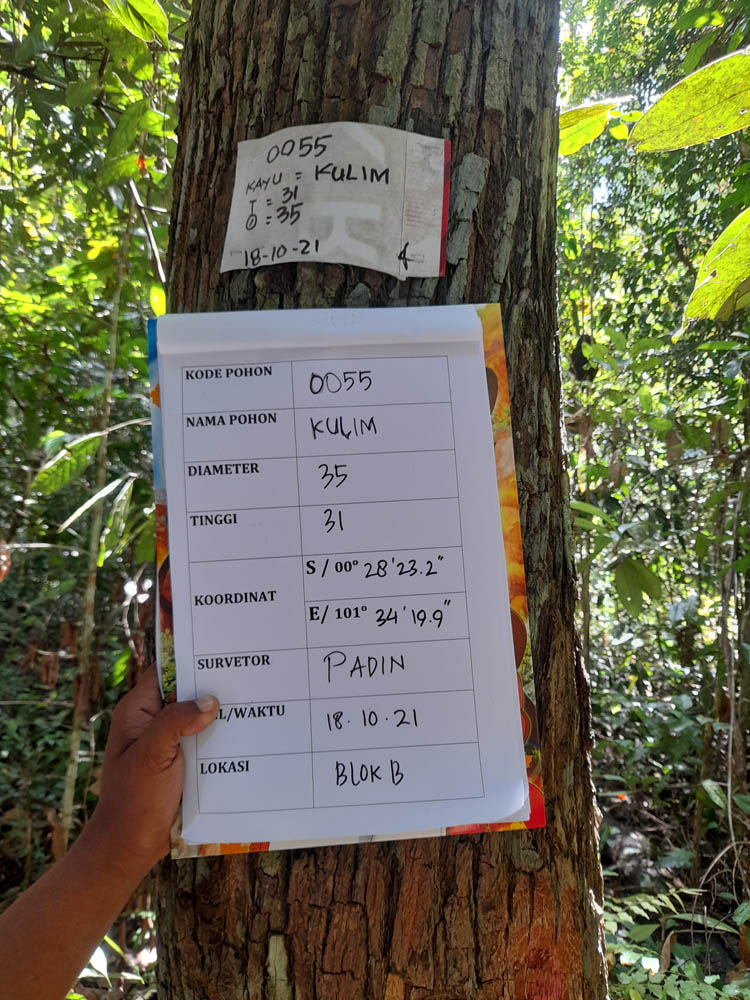 0055
KAYU = KULIM
T = 31
Ꙩ = 35
18-10-21
KODE POHON 0055
NAMA POHON KULIM
DIAMETER 35
TINGGI 31
KOORDINAT S / 00° 28'23.2"
E/ 101° 34'19.9"
SURVETOR PADIN
L/WAKTU 18.10.21
LOKASI BLOK B